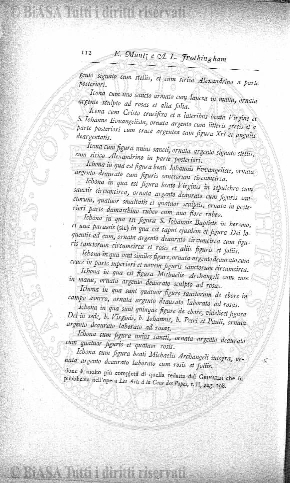 © BIASA Tutti i diritti riservati
112 E. Muntz e A. L. Frothingham
gento signato cum stellis, et cum sirico Alexandrino a parte
posteriori.
Icona cum uno sancto ornato cum lancea in manu, ornata
argento sculpto ad rosas et alia folia.
Icona cum Cristo crucifixo et a lateribus beata Virgine et
S. Iohanne Evangelista, ornata argento cum litteris grecis et a
parte posteriori cum cruce argentea cum figura Xri et angulis
deargentatis.
Icona cum figura unius sancti, ornata argento signato stellis,
cum sirico Alexandrino in parte posteriori.
Ichona in qua est figura beati Iohannis Evangelistae, ornata
argento deaurato cum figuris sanctorum circumcirca.
Ichona in qua est figura beate Virginis in sepulchro cum
sanctis circumcirca, ornata argento deaurato cum figuris sanctorum,
quatuor smaltatis et quatuor sculptis, ornata in posteriori
parte damaschino rubeo cum uno flore rubeo.
Ichona in qua est figura S. Iohannis Baptiste in heremo,
et una parvuni (sic) in qua est caput eiusdem et figura Dei loquentis
ad eum, ornata argento deaurato circumcirca cum figuris
sanctorum circumcirca et rosis et aliis figuris et foliis.
Ichona in qua sunt similes figure, ornata argento deaurato cum
cruce in parte superiori et novem figuris sanctorum circumcirca.
Ichona in qua est figura Michaelis Archangeli cum ense
in manu, ornata argento deaurato sculpto ad rosas.
Ichona in qua sunt quatuor figure sanctorum de ebore in
campo aureo, ornata argento deaurato laborato ad rosas.
Ichona in qua sunt quinque figure de ebore, videlicet figura
Dei in sede, b. Virginis, b. Iohannis, b. Petri et Pauli, ornata
argento deaurato laborato ad rosas.
Ichona cum figura unius sancti, ornata argento deaurato
cum quatuor figuris et quatuor rosis.
Ichona cum figura beati Michaelis Archangeli integra, ornata
argento deaurato laborato cum rosis et foliis.
zione è molto più completa di quella redatta dal Cannizzi che fu
pubblicata nell'opera Les Arts à la Cour des Papes, t. II, pag. 198.
© BIASA Tutti i diritti riservati